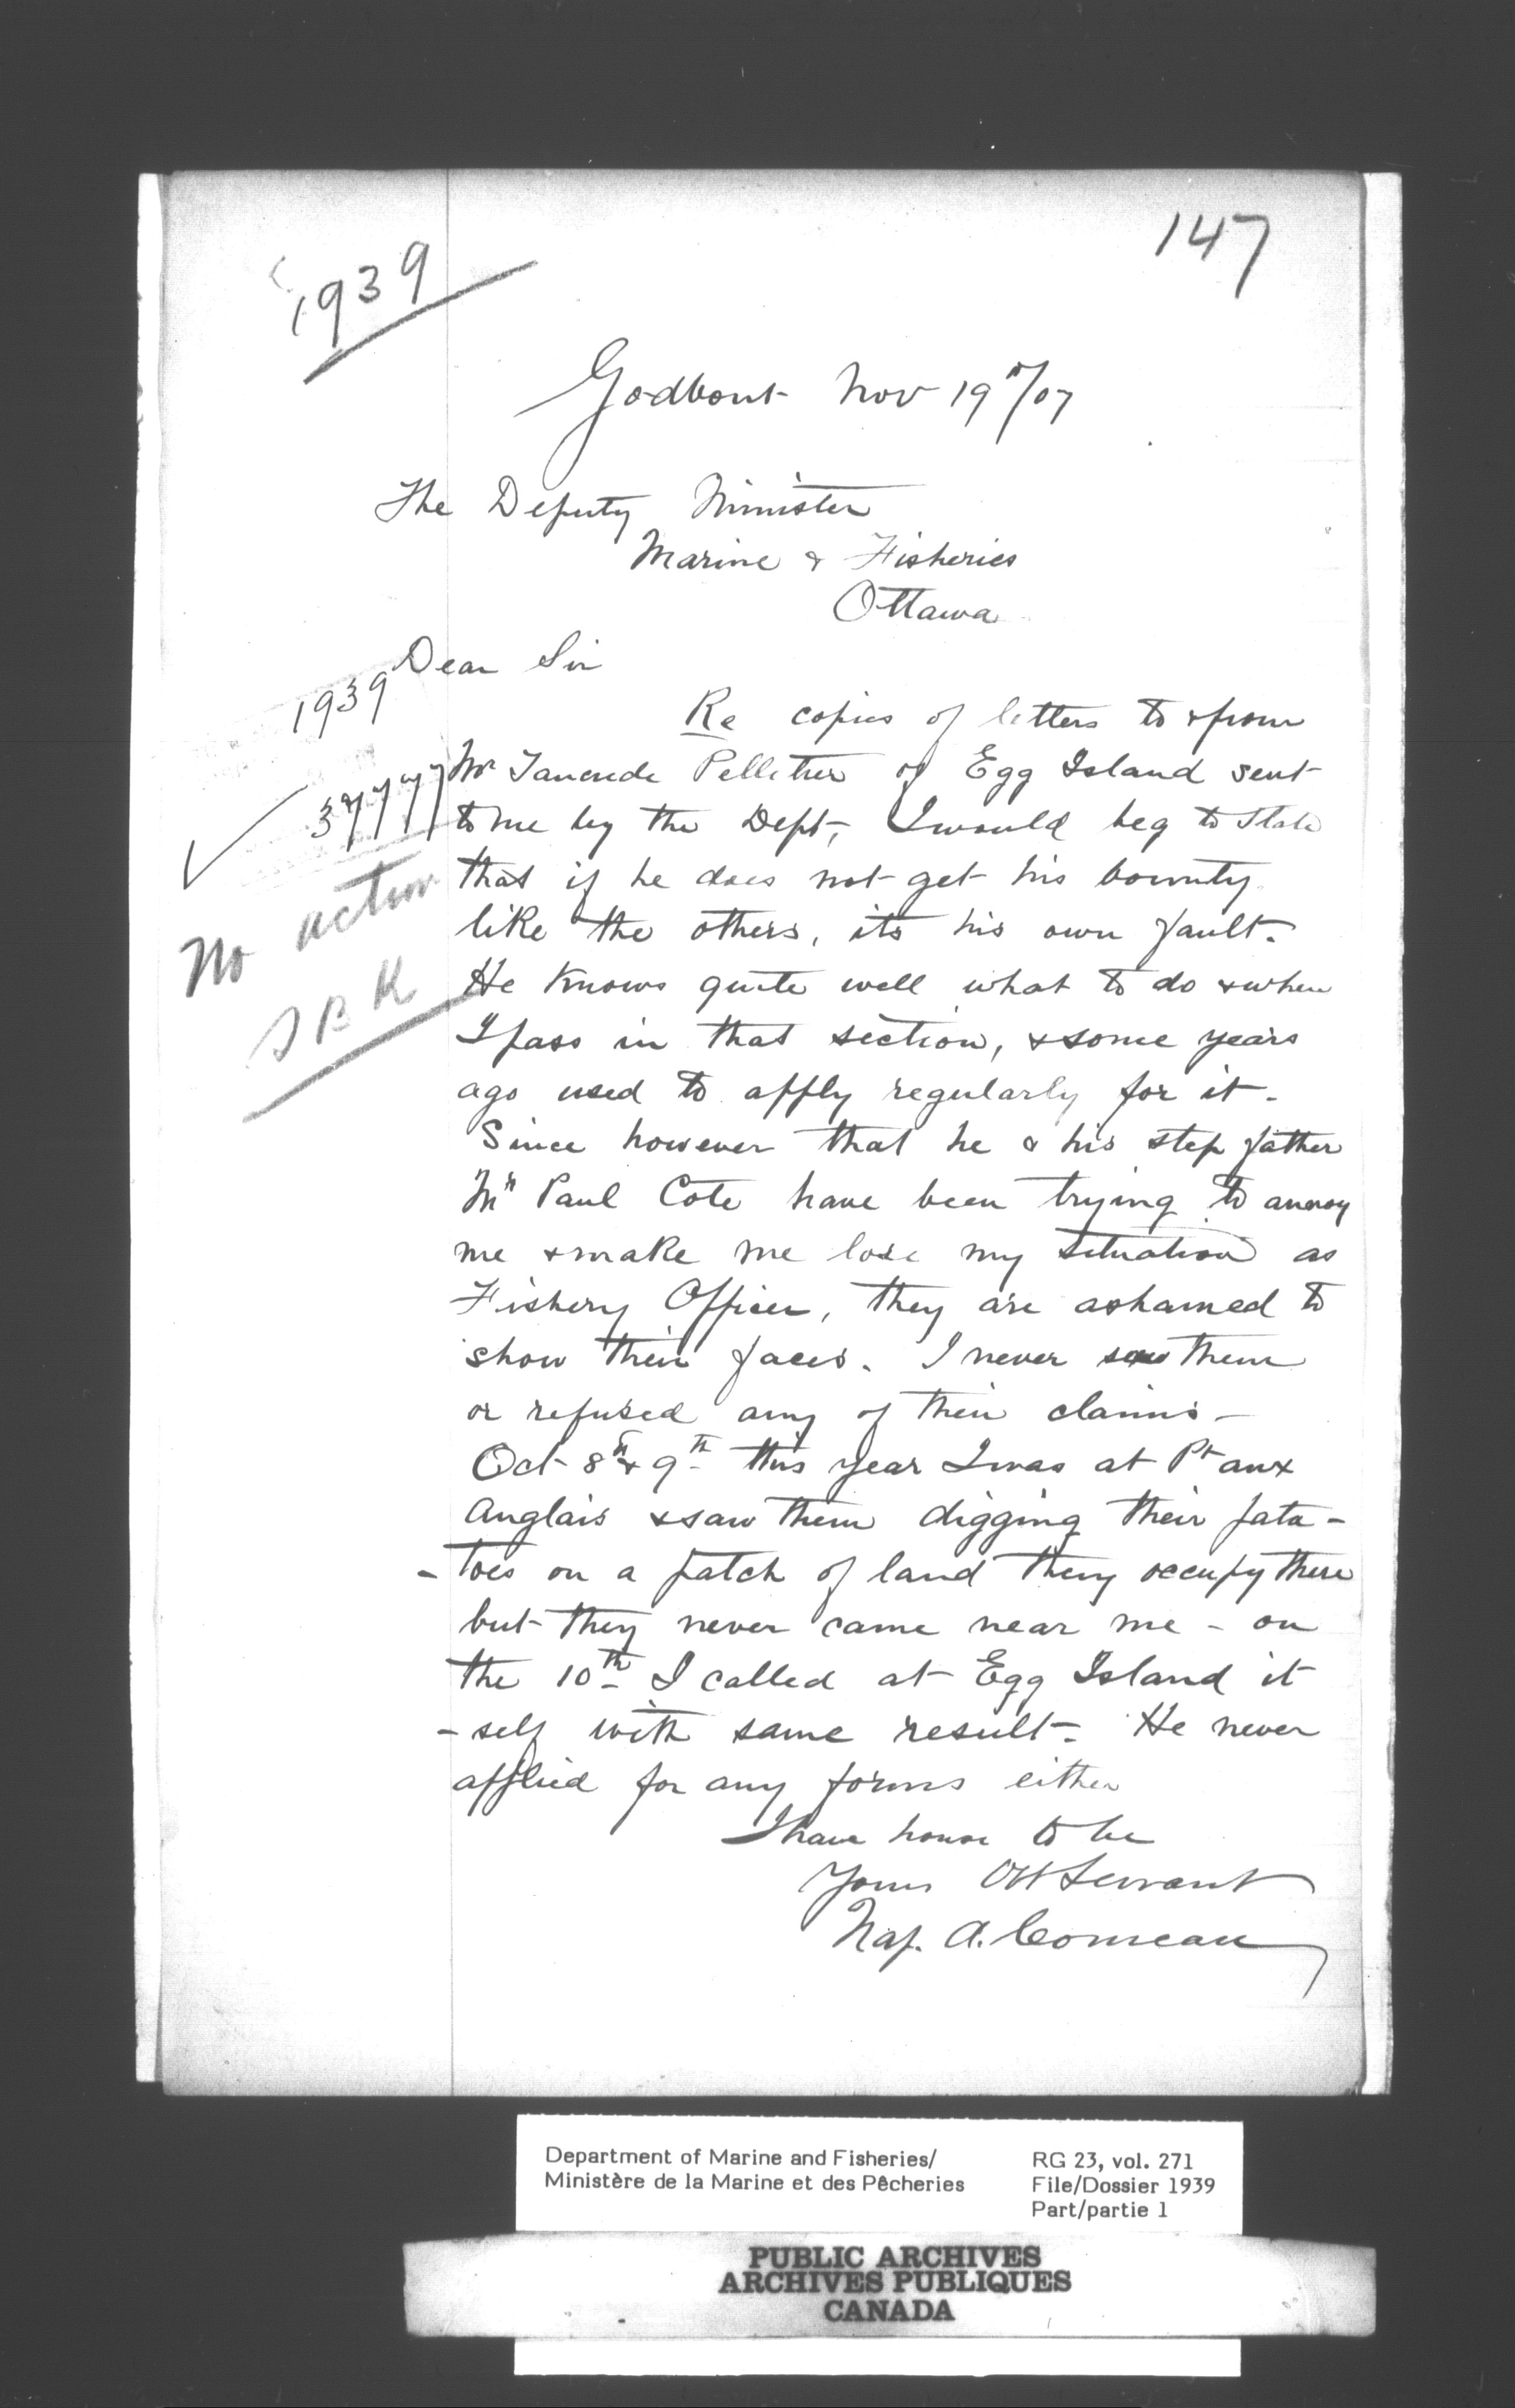 147
1939
Godbout Nov 19th/07
The Deputy Minister
Marine & Fisheries
Ottawa
Dear Sir
1939
37777
No action
Re copies of letters to & from
Mr Tancrede Pelletier of Egg Island sent
to me by the Dept, I would beg to state
that if he does not get his bounty
like the others, its his own fault.
He knows quite well what to do & when
I pass in that section, & some years
ago used to apply regularly for it -
Since however that he & his step father
Mr Paul Cote have been trying to annoy
me & make me lose my situation as
Fishery Officer, they are ashamed to
show their faces. I never saw them
or refused any of their claims -
Oct 8th & 9th this year I was at Pt aux
Anglais & saw them digging their pata-
-toes on a patch of land they occupy there
but they never came near me - on
the 10th I called at Egg Island it
-self with same result - He never
applied for any forms either
I have honor to be
Your Obt Servant
Nap. A. Comeau
Department of Marine and Fisheries/
Ministère de la Marine et des Pêcheries
RG 23, vol. 271
File/Dossier 1939
Part/partie 1
PUBLIC ARCHIVES
ARCHIVES PUBLIQUES
CANADA